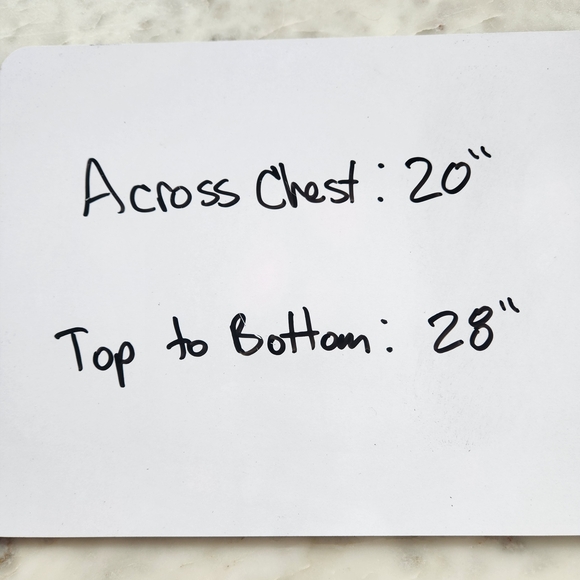 Across Chest: 20"
Top to Bottom: 28"